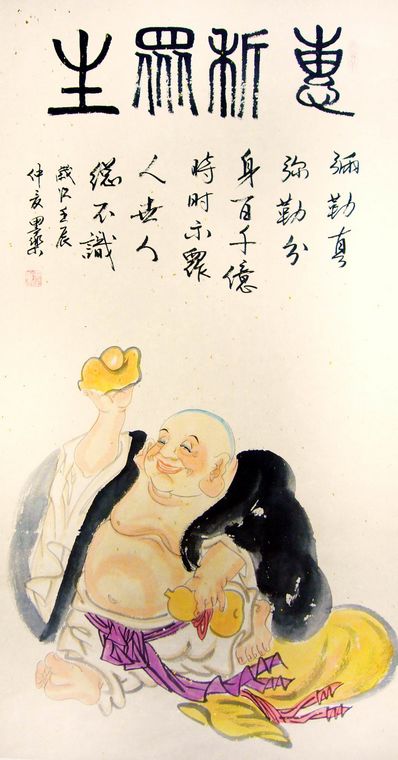 惠祈眾生
彌勒真
弥勒分
身百千億
時时示眾
人世人
總不識
歲次壬辰
仲亥